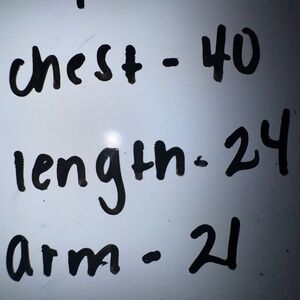 chest - 40
length - 24
arm - 21